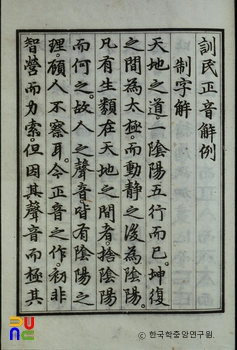 訓民正音解例
制字解
天地之道。一陰陽五行而已。坤復
之間為太極。而動靜之後為陰陽。
凡有生類在天地之間者。捨陰陽
而何之。故人之聲音。皆有陰陽之
理。顧人不察耳。今正音之作。初非
智營而力索。但因其聲音而極其
PUNC
한국학중앙연구원